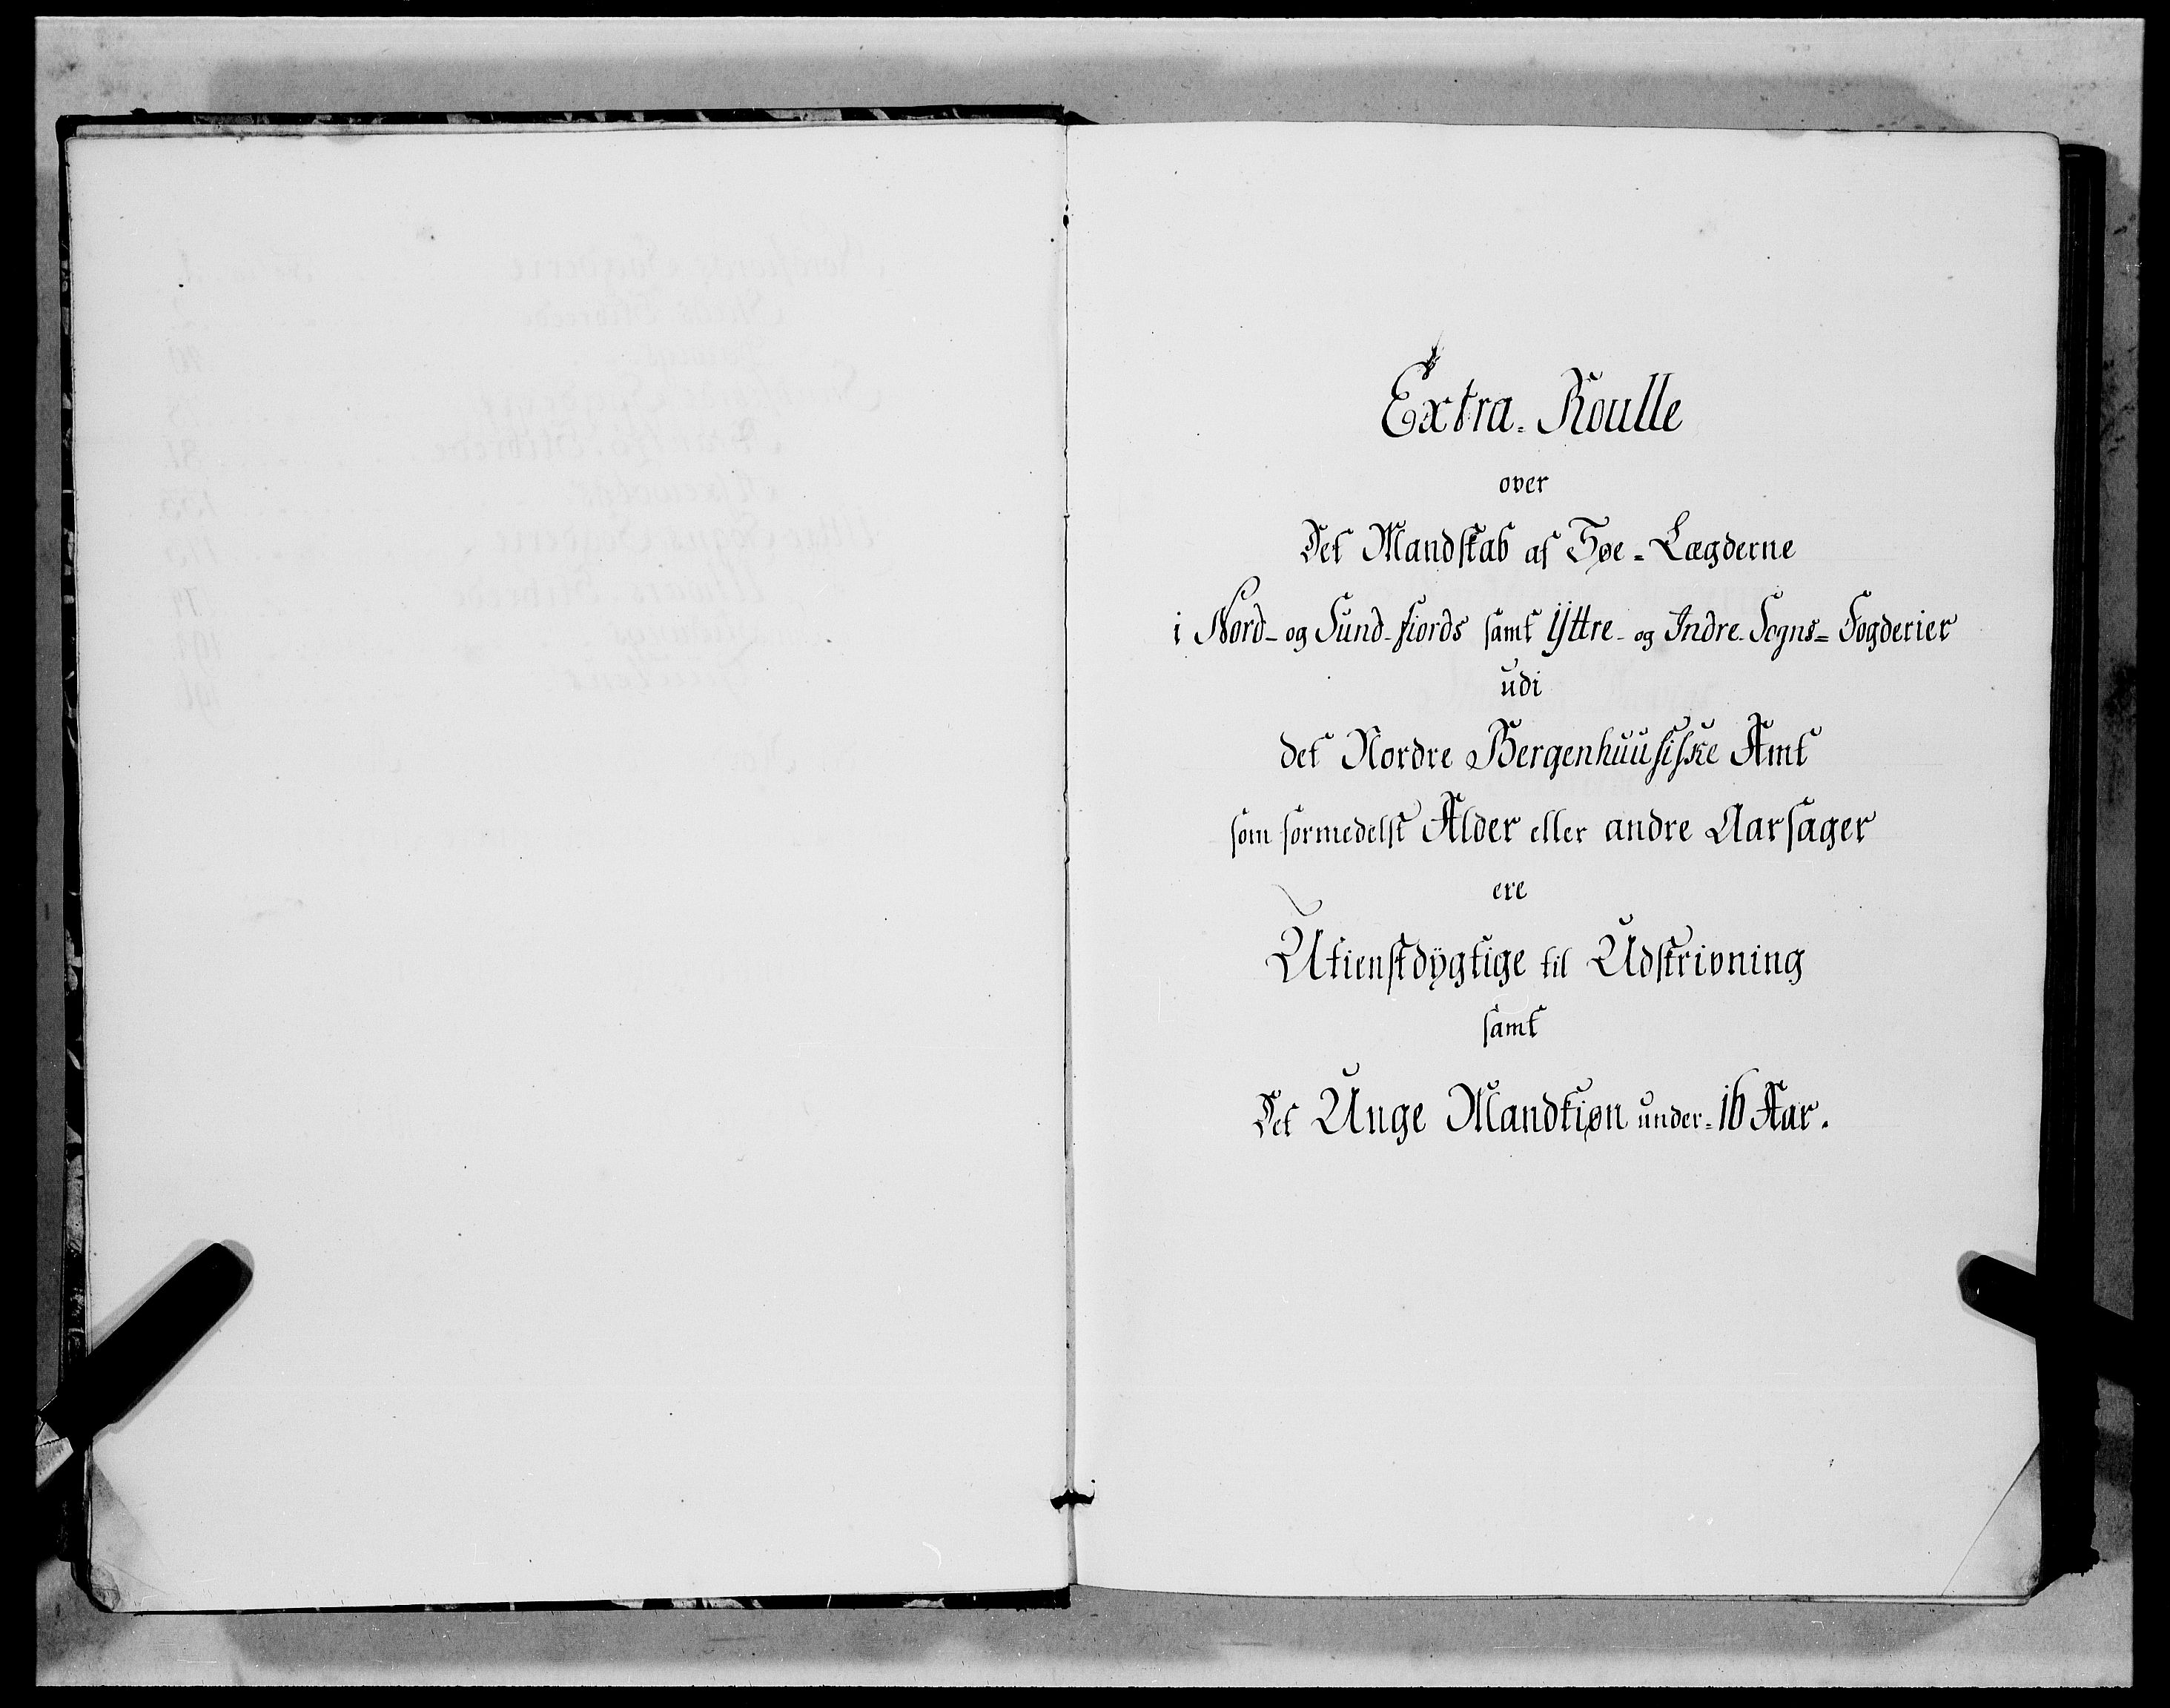 Extra-Roulle
over
Det Mandskab af Søe-Lægderne
i Nord- og Sund-fiords samt Yttre- og Indre-Sogns-Fogderier
udi
det Nordre Bergenhuusiske Amt
som formedelst Alder eller andre Aarsager
ere
Utienstdygtige til Udskrivning
samt
Det Unge Mandkiøn under-16 Aar.